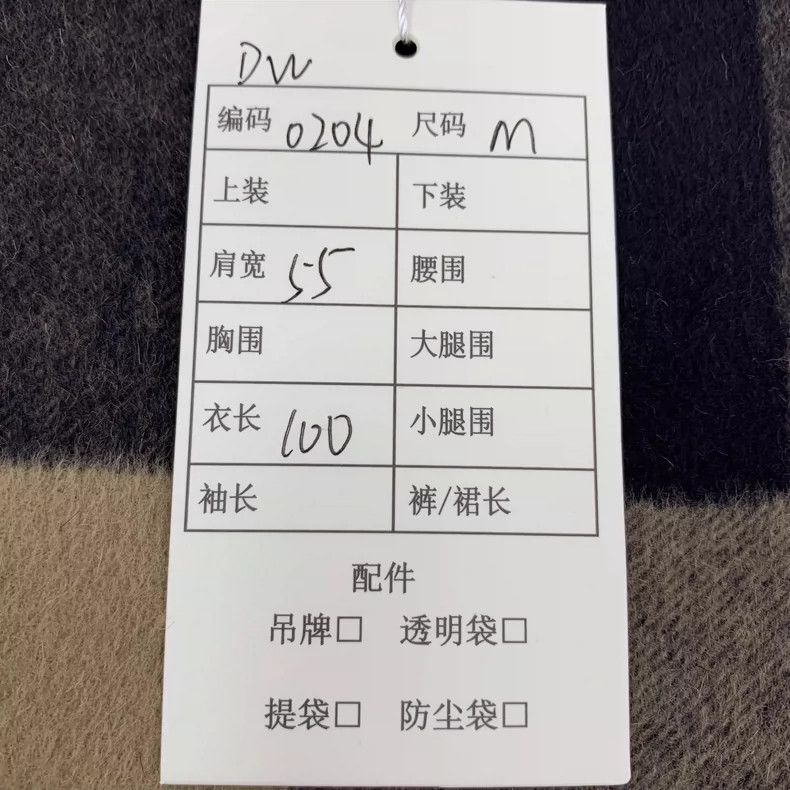 DW
编码 0204 尺码 M
上装 下装
肩宽 55 腰围
胸围 大腿围
衣长 100 小腿围
袖长 裤/裙长
配件
吊牌□ 透明袋□
提袋□ 防尘袋□